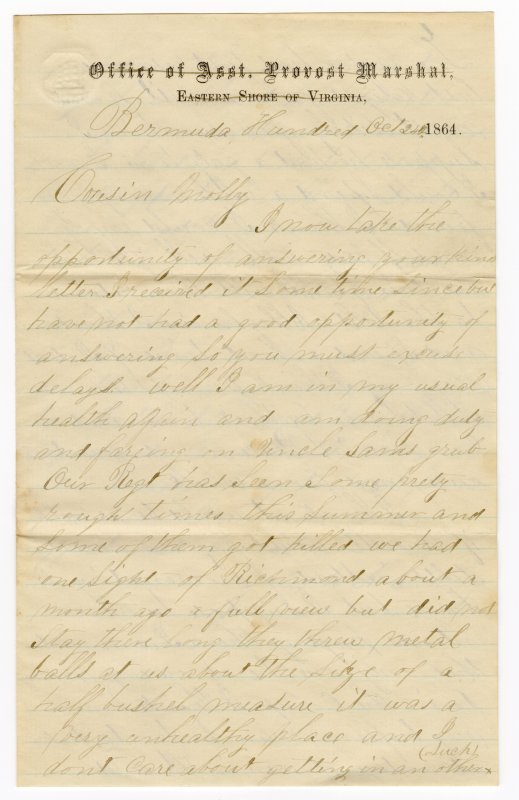 Office of Asst. Provost Marshal,
Eastern Shore of Virginia,
Bermuda Hundred Oct 1864.
Cousin Molly
I now take the
opportunity of answering your kind
letter I received it some time since but
have not had a good opportunity of
answering so you must excuse
delays well I am in my usual
health again and am doing duty
and on Uncle Sams grub
Our Regt has seen some prety
rough times this summer and
some of them got killed we had
one sight of Richmond about a
month ago a full view but did not
stay there long they threw metal
balls at us about the size of a
half bushel measure it was a
very unhealthy place and I
dont care about getting in an other
(such)